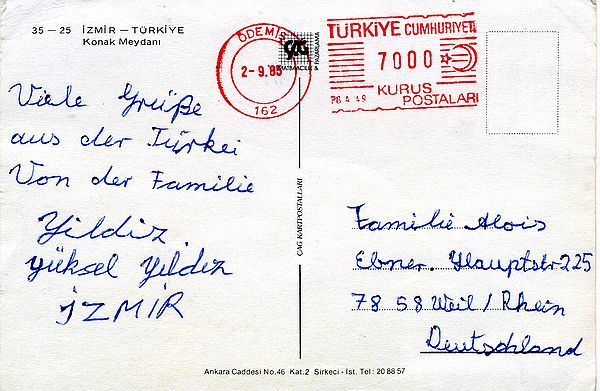 35 – 25 İZMİR – TÜRKİYE
Konak Meydanı
Viele Grüße
aus der Türkei
Von der Familie
Yildiz
yüksel yildiz
İZMİR
ÖDEMİŞ
2-9.85
162
ÇAĞ
& PAZARLAMA
TÜRKİYE CUMHURİYETİ
7000
KURUŞ
POSTALARI
ÇAĞ KARTPOSTALLARI
Familie Alois
Ebner. Hauptstr 225
78 58 Weil / Rhein
Deutschland
Ankara Caddesi No.46 Kat.2 Sirkeci - İst. Tel : 20 88 57